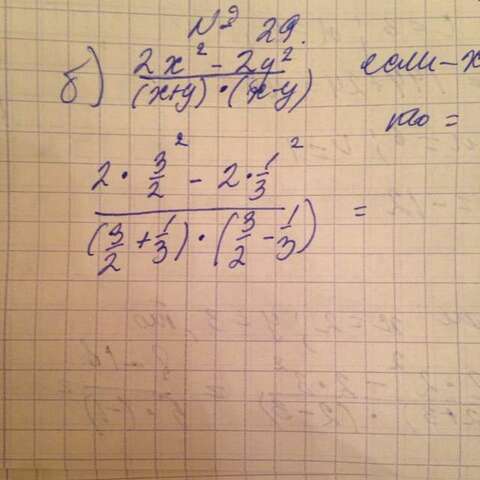 № 29.
б) (2x² - 2y²)/((x+y)·(x-y)) если - x
то =
(2·3/2² - 2·1/3²)/((3/2+1/3)·(3/2-1/3)) =